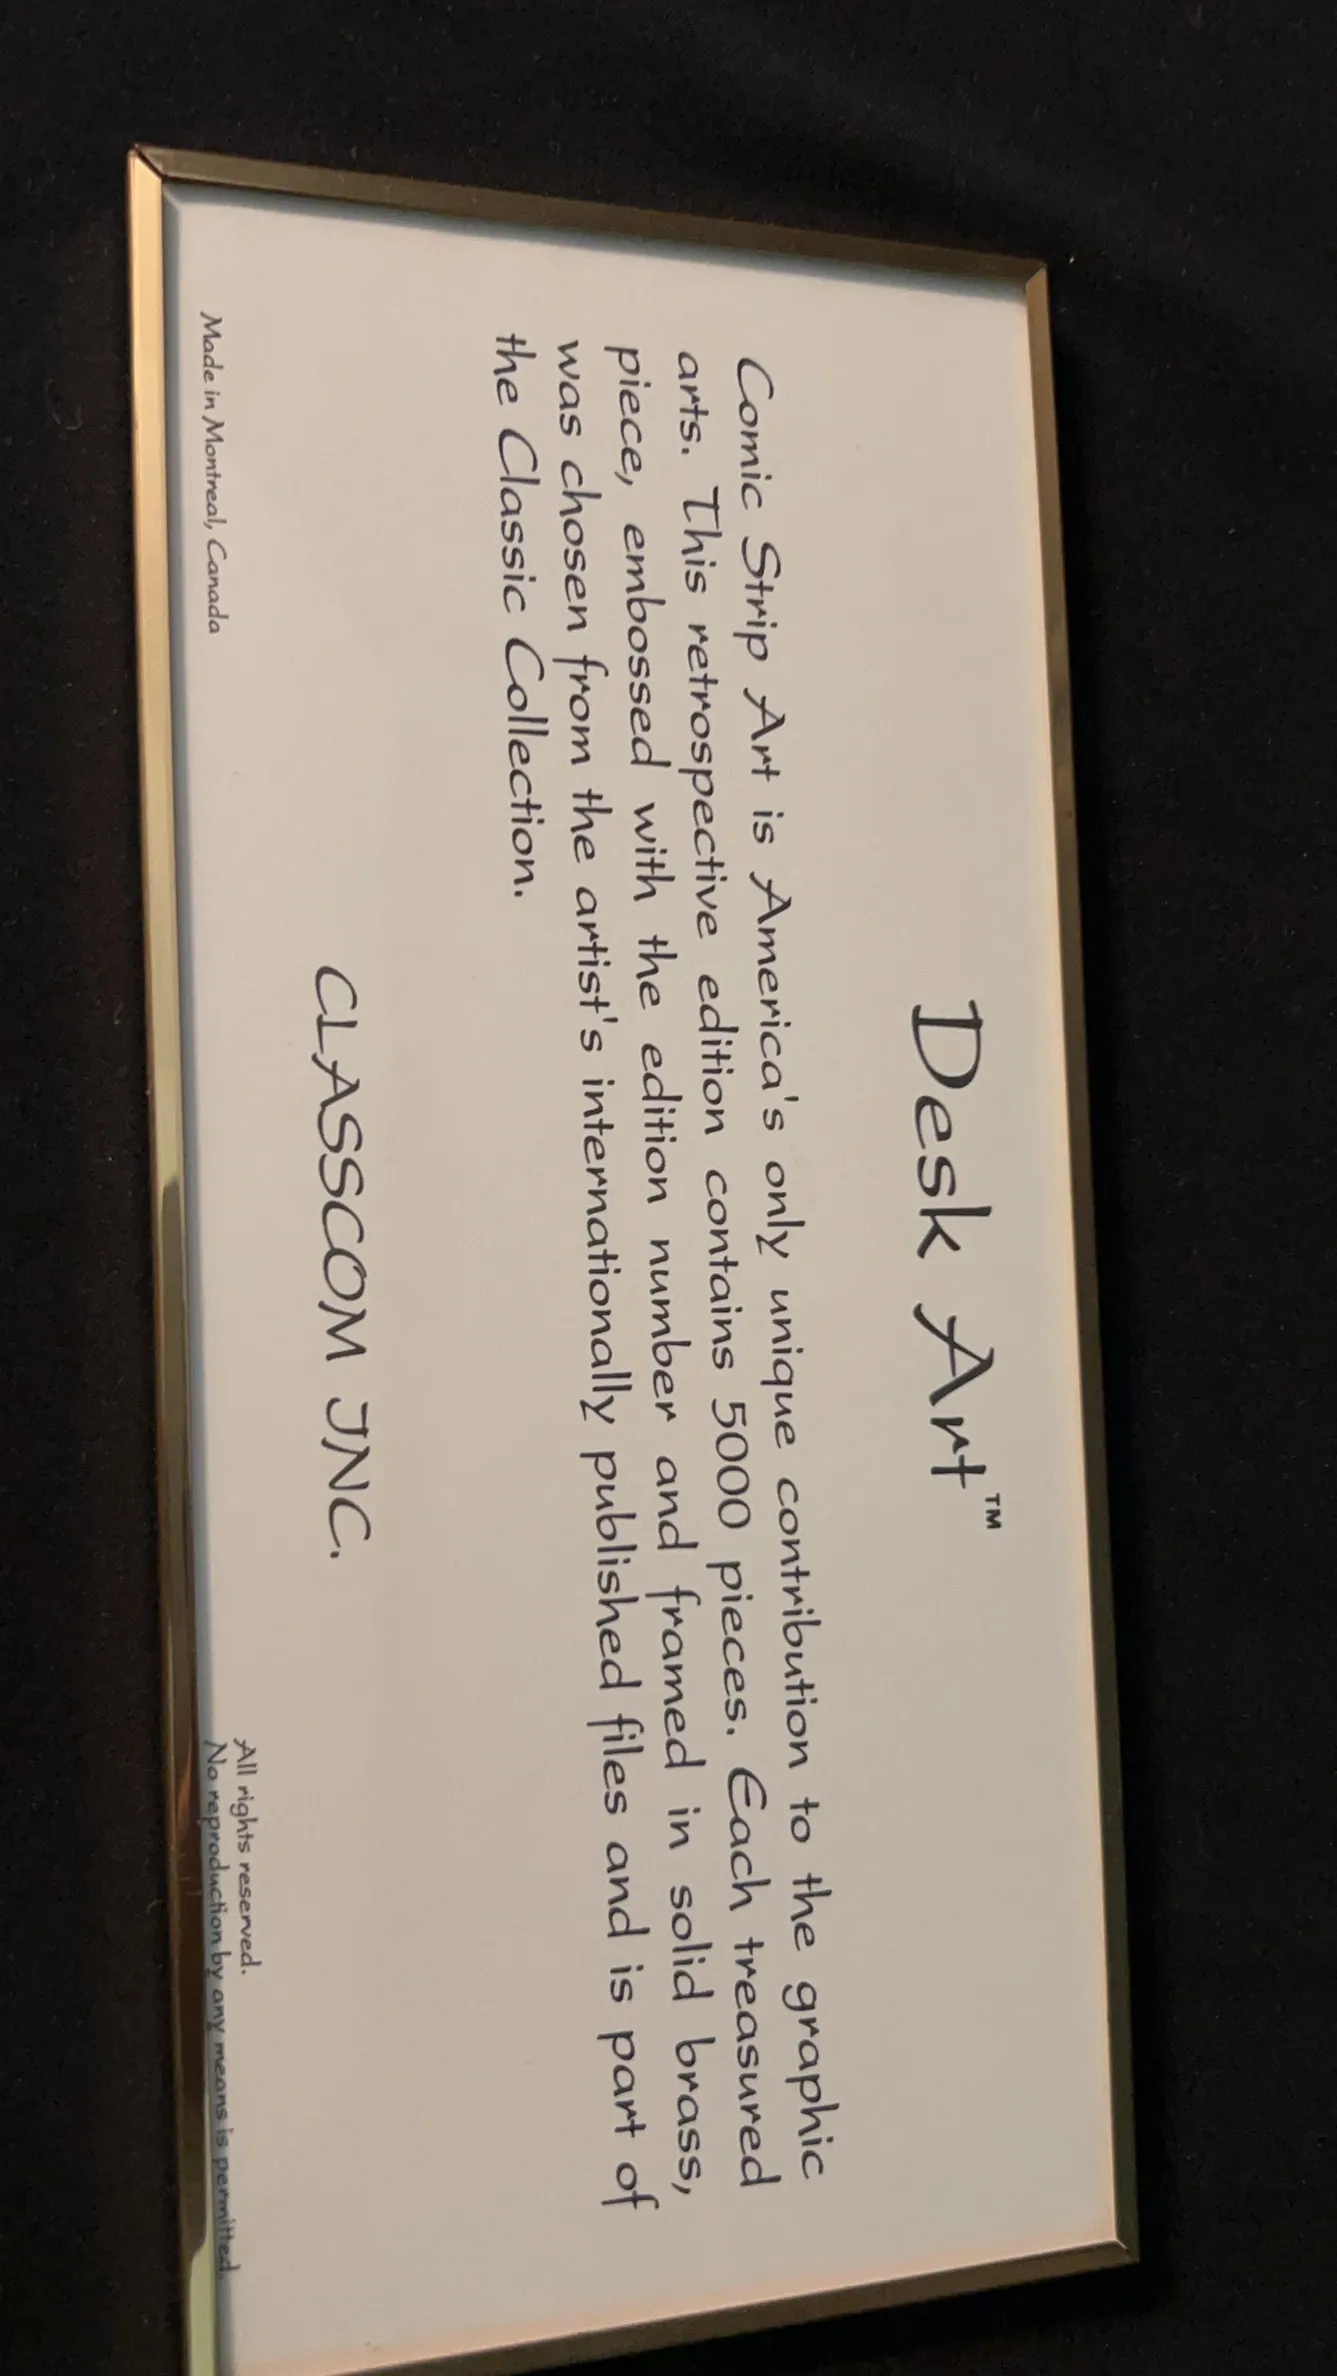 Desk Art™
Comic Strip Art is America's only unique contribution to the graphic
arts. This retrospective edition contains 5000 pieces. Each treasured
piece, embossed with the edition number and framed in solid brass,
was chosen from the artist's internationally published files and is part of
the Classic Collection.
CLASSCOM INC.
Made in Montreal, Canada
All rights reserved.
No reproduction by any means is permitted.